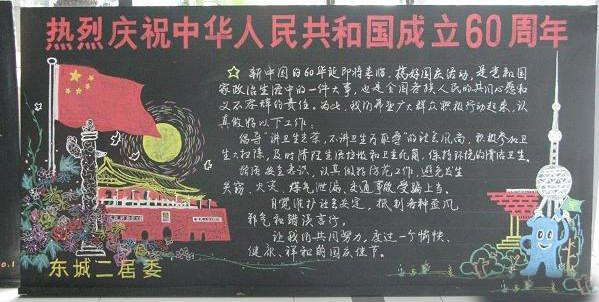 热烈庆祝中华人民共和国成立60周年
☆ 新中国的60年诞即将来临。搞好国庆活动,是党和国
家政治生活中的一件大事,也是全国各族人民的共同心愿和
义不容辞的责任。为此,我们希望广大群众积极行动起来,认
真做好以下工作:
倡导"讲卫生光荣,不讲卫生可耻"的社会风尚,积极参加卫
生大扫除,及时清理生活垃圾和卫生死角,保持环境的清洁卫生。
提高安全意识,认真做好防范工作,避免发生
失窃、火灾、煤气泄漏、交通事故受骗上当。
自觉维护社会安定,抵制各种歪风
邪气和错误言行。
让我们共同努力,度过一个愉快、
健康、祥和的国庆佳节。
东城二居委